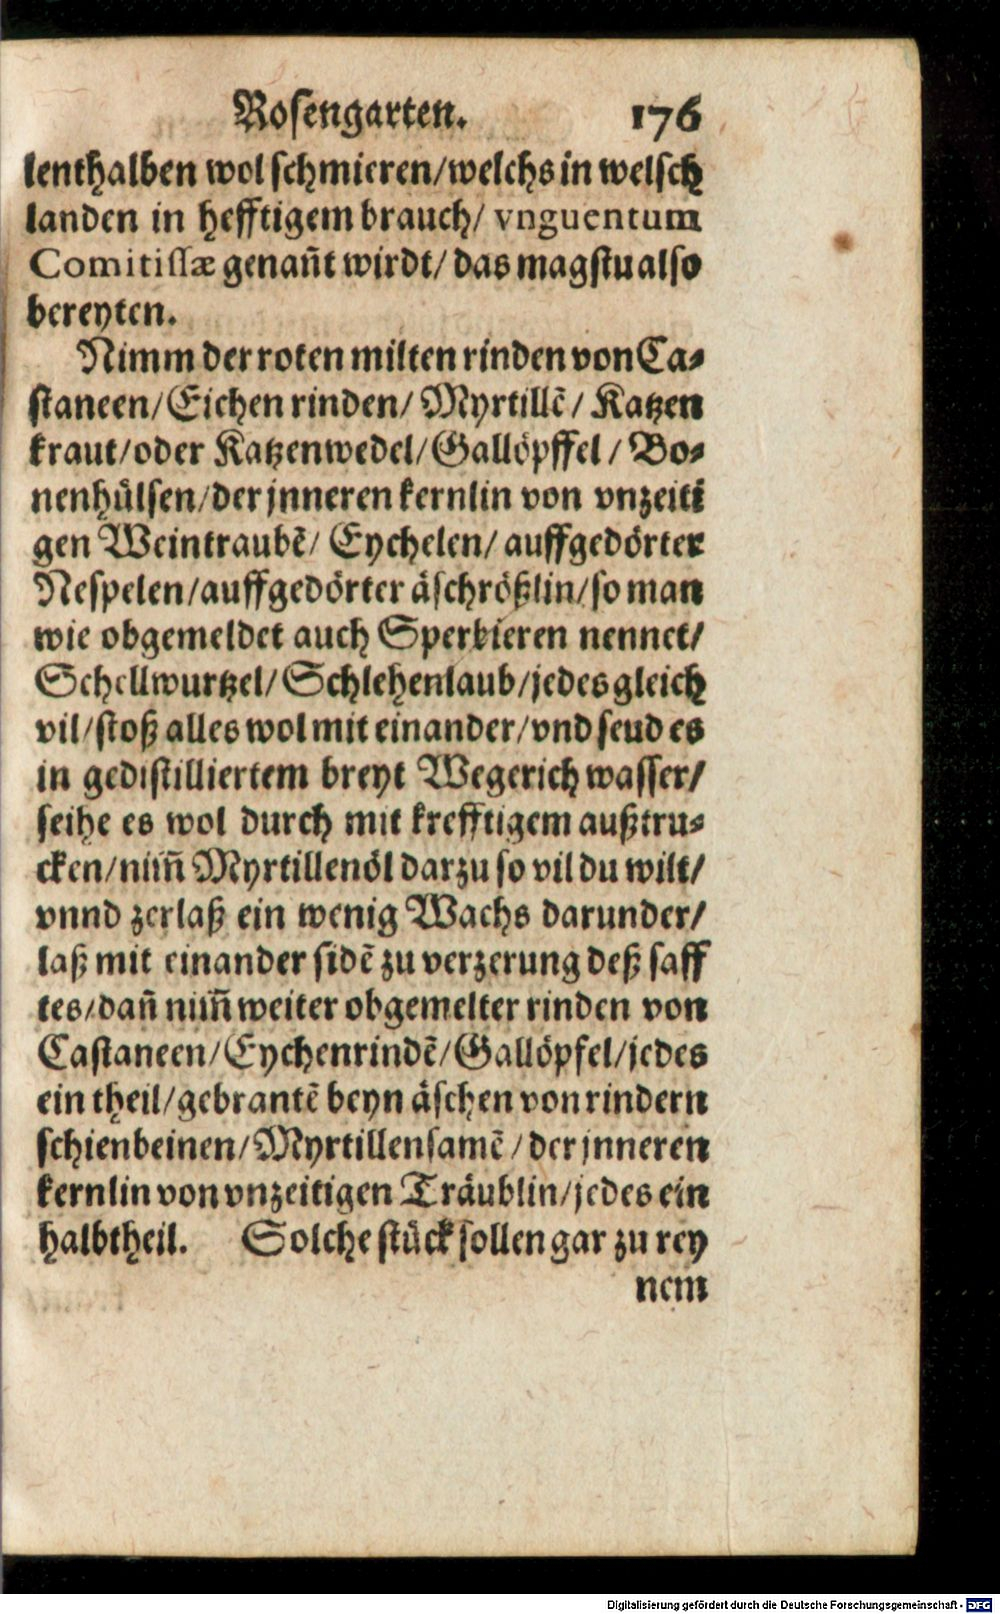 Rosengarten. 176
lenthalben wol schmieren/welchs in welsch
landen in hefftigem brauch/ vnguentum
Comitissæ genañt wirdt/ das magstu also
bereyten.
Nimm der roten milten rinden von Ca⸗
staneen/Eichen rinden/ Myrtillẽ/ Katzen
kraut/oder Katzenwedel/Gallöpffel/ Bo⸗
nenhülsen/der jnneren kernlin von vnzeiti
gen Weintraubẽ/ Eychelen/ auffgedörter
Nespelen/auffgedörter äschrößlin/so man
wie obgemeldet auch Sperbieren nennet/
Schellwurtzel/Schlehenlaub/jedes gleich
vil/stoß alles wol mit einander/vnd seud es
in gedistilliertem breyt Wegerich wasser/
seihe es wol durch mit krefftigem außtru⸗
cken/nim̃ Myrtillenöl darzu so vil du wilt/
vnnd zerlaß ein wenig Wachs darunder/
laß mit einander sidẽ zu verzerung deß saff
tes/dañ nim̃ weiter obgemelter rinden von
Castaneen/Eychenrindẽ/Gallöpfel/jedes
ein theil/gebrantẽ beyn äschen von rindern
schienbeinen/Myrtillensamẽ/der jnneren
kernlin von vnzeitigen Träublin/jedes ein
halbtheil. Solche stück sollen gar zu rey
nem
Digitalisierung gefördert durch die Deutsche Forschungsgemeinschaft - DFG